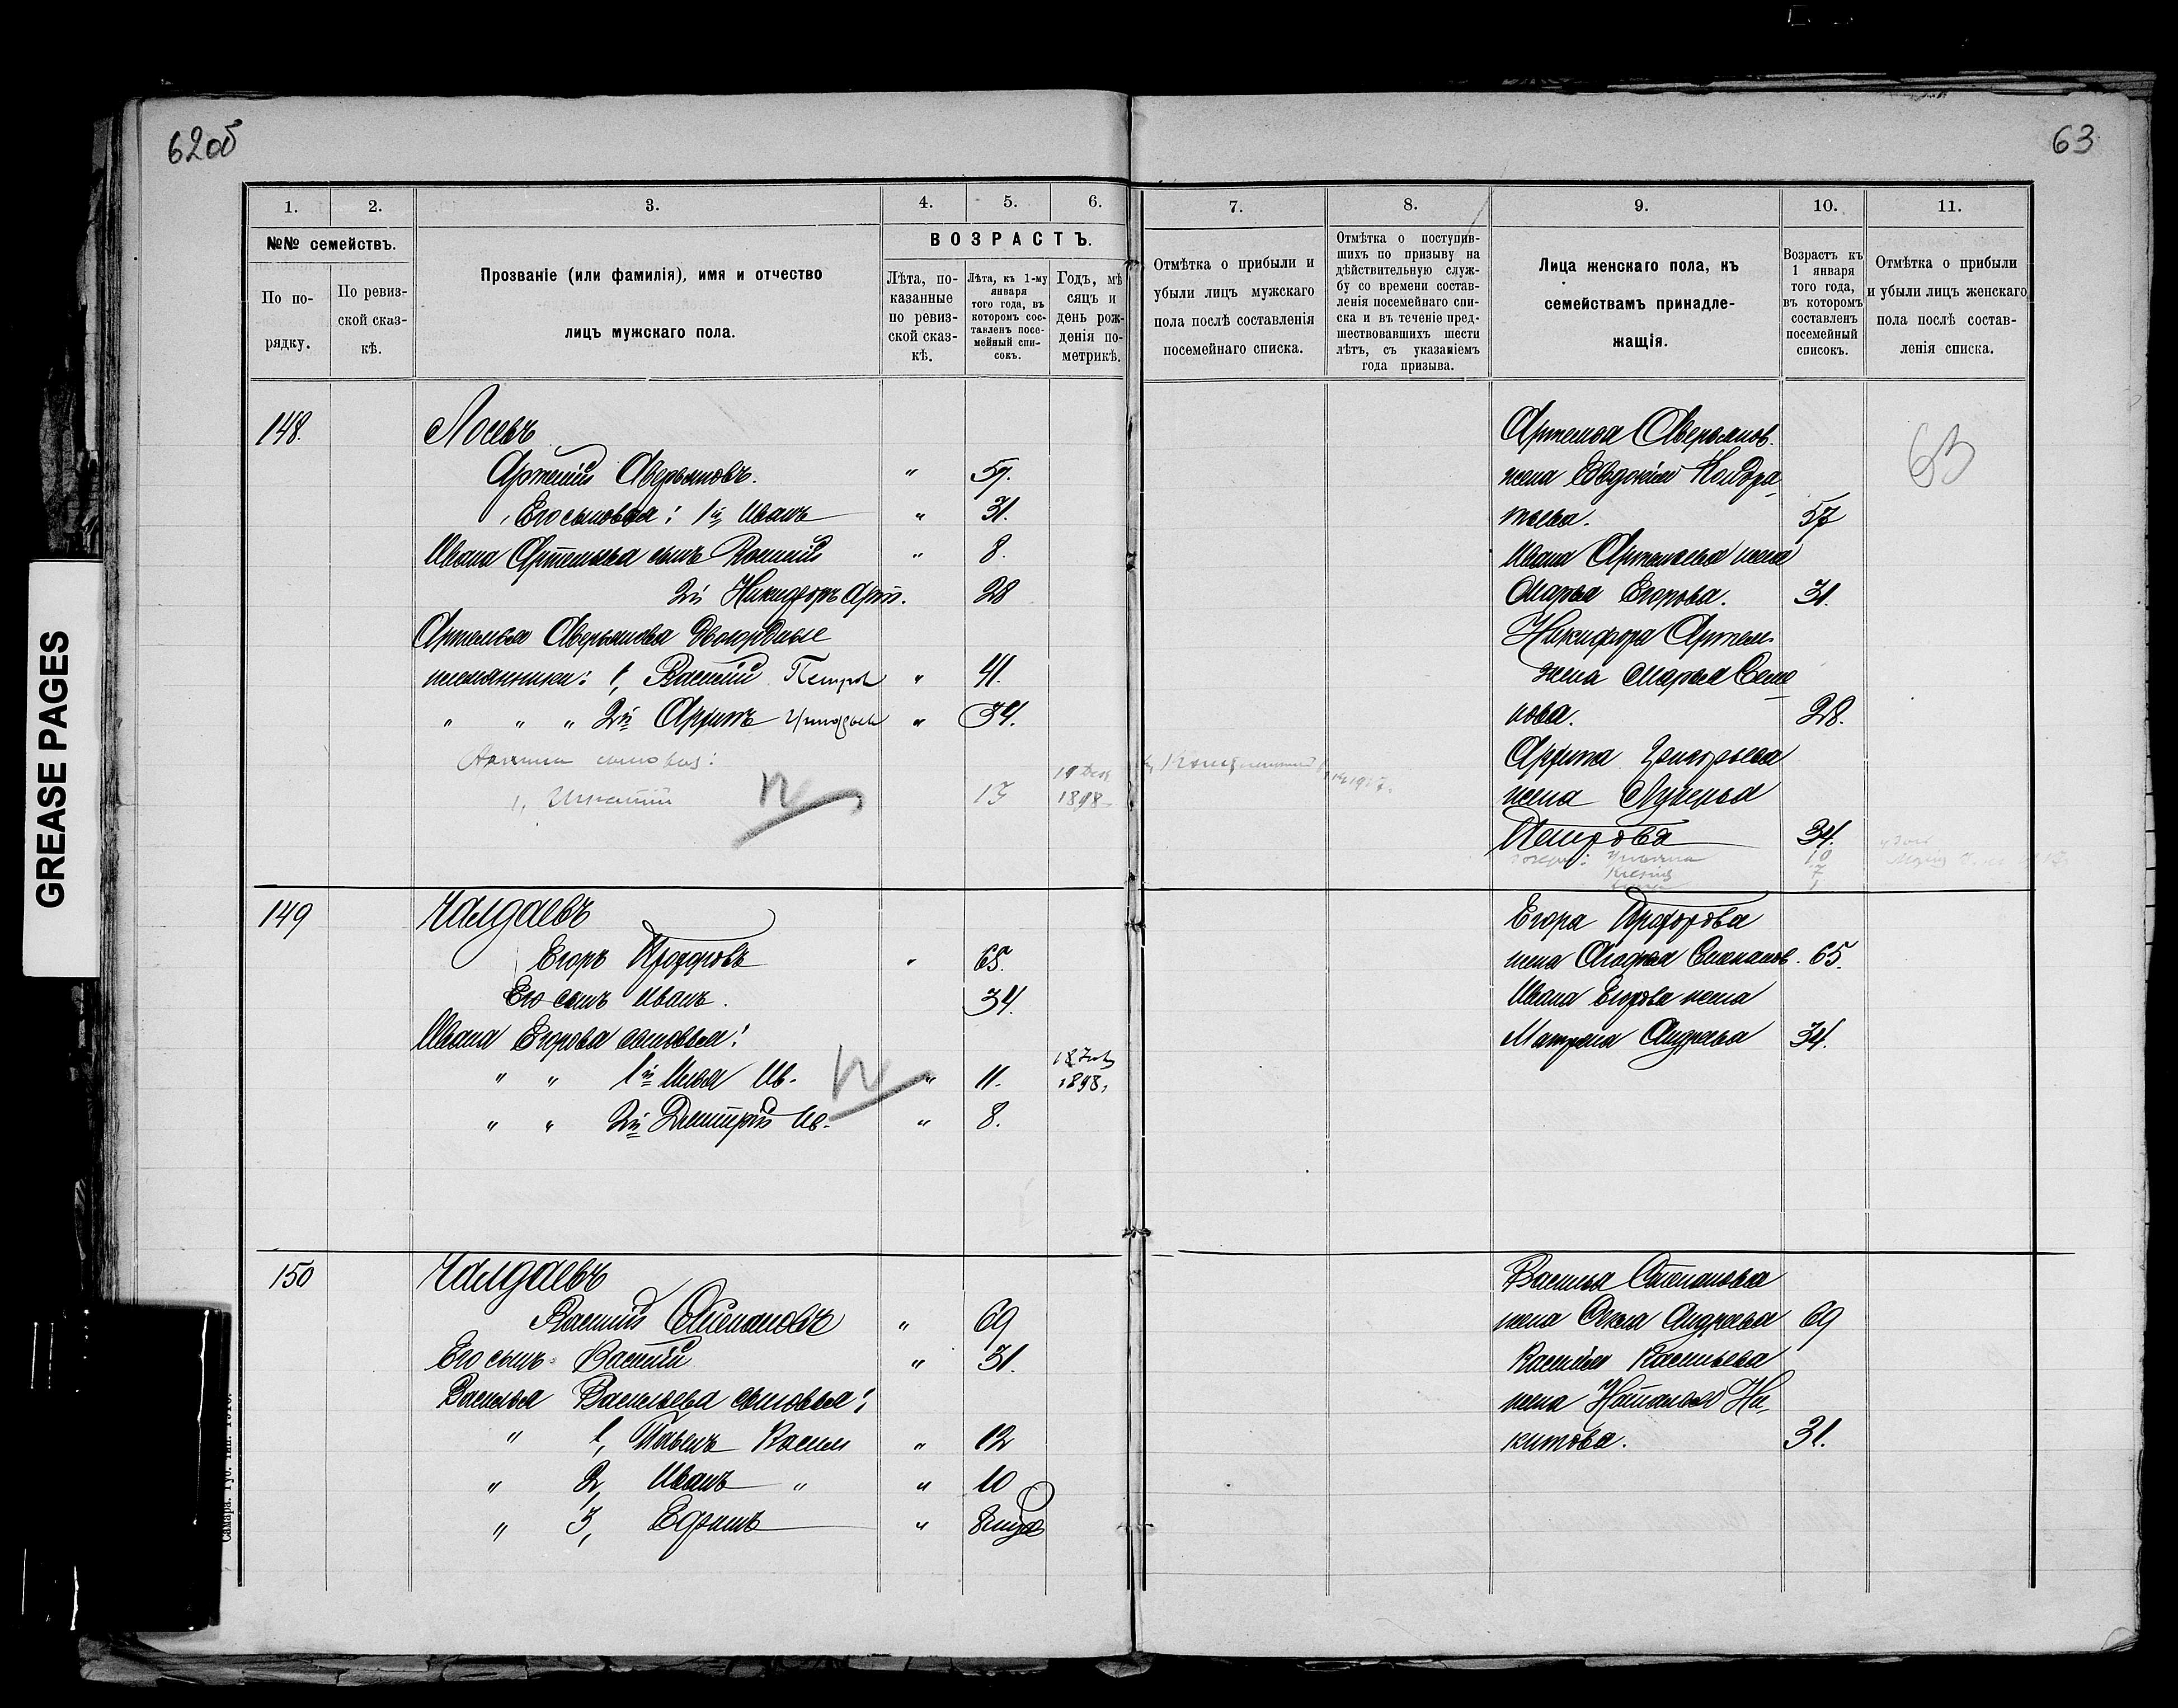 62об
63
GREASE PAGES
1.
2.
3.
4.
5.
6.
№№ семействъ.
По по-
рядку.
По ревиз-
ской сказ-
кѣ.
Прозваніе (или фамилія), имя и отчество
лицъ мужскаго пола.
ВОЗРАСТЪ.
Лѣта, по-
казанные
по ревиз-
ской сказ-
кѣ.
Лѣта, къ 1-му
января
того года, въ
которомъ сос-
тавленъ посе-
мейный спи-
сокъ.
Годъ, мѣ
сяцъ и
день рож-
денія по-
метрикѣ.
148.
Лосевъ
Артемій Аверьяновъ. " 57.
Его сыновья: 1й Иванъ " 31.
Ивана Артемьева сынъ Василій " 8.
2й Никифоръ Арт. 28
Артемья Аверьянова двоюродные
племянники: 1, Василій Петров " 41.
" " " 2й Архипъ Григорьев " 34.
Архипа сыновья:
1, Игнатій 13 1898
149
Чалдаевъ
Егоръ Прохоровъ " 65.
Его сынъ Иванъ. 34.
Ивана Егорова сыновья:
" " 1й Илья Ив. " 11. 1898,
" " 2й Дмитрій Ив. " 8.
150
Чалдаевъ
Василий Степановъ " 69
Его сынъ Василій " 31.
Василья Васильева сыновья:
" 1, Павелъ Васил " 12
" 2, Иванъ " " 10
" 3, Ефимъ "
Самара. Губ. Тип.
7.
8.
9.
10.
11.
Отмѣтка о прибыли и
убыли лицъ мужскаго
пола послѣ составленія
посемейнаго списка.
Отмѣтка о поступив-
шихъ по призыву на
дѣйствительную служ-
бу со времени состав-
ленія посемейнаго спи-
ска и въ теченіе пред-
шествовавшихъ шести
лѣтъ, съ указаніемъ
года призыва.
Лица женскаго пола, къ
семействамъ принадле-
жащія.
Возрастъ къ
1 января
того года,
въ которомъ
составленъ
посемейный
списокъ.
Отмѣтка о прибыли
и убыли лицъ женскаго
пола послѣ состав-
ленія списка.
Артемья Аверьянов.
жена Евдокія Кондра-
тьева. 57
63
Ивана Артемьева жена
Марья Егорова. 31.
Никифора Артем.
жена Марья Семе
нова. 28.
Архипа Григорьева
жена Лукерья
Петрова 34.
10
7
Егора Прохорова
жена Агафья Степанов. 65.
Ивана Егорова жена
Матрена Андреева 34.
Василья Степанова
жена Фекла Андреева 69
Василья Васильева
жена Наталья Ни-
китова. 31.